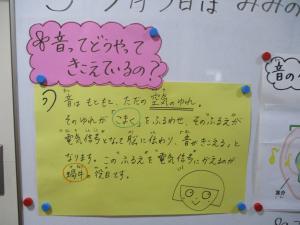 3月3日は みみの
音ってどうやって
きこえているの？
音はもともと、ただの空気のゆれ。
そのゆれが こまく をふるわせ、そのふるえが
電気信号となって脳に伝わり、音がきこえる。と
なります。このふるえを電気信号にかえるのが
蝸牛の役目です。
音の